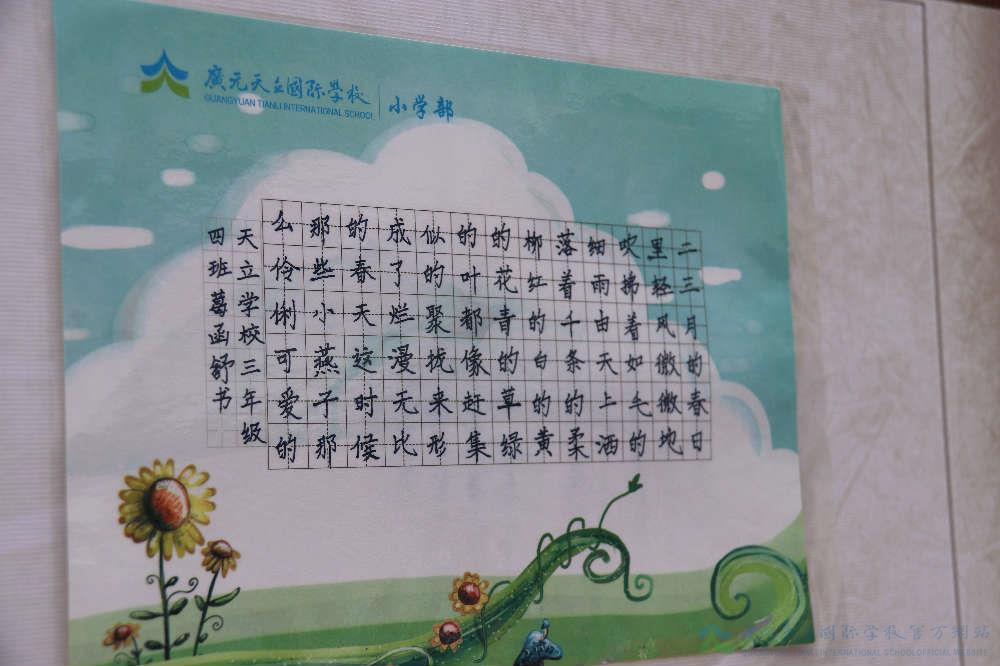 廣元天立國际學校
GUANGYUAN TIANLI INTERNATIONAL SCHOOL
小学部
二三月的春日
里轻风微微地
吹拂着如毛的
细雨由天上洒
落着千条的柔
柳红的白的黄
的花青的草绿
的叶都像赶集
似的聚拢来形
成了烂漫无比
的春天这时候
那些小燕子那
么伶俐可爱的
天立学校三年级
四班葛函舒书
國际學校官方網站
INTERNATIONAL SCHOOL OFFICIAL WEBSITE